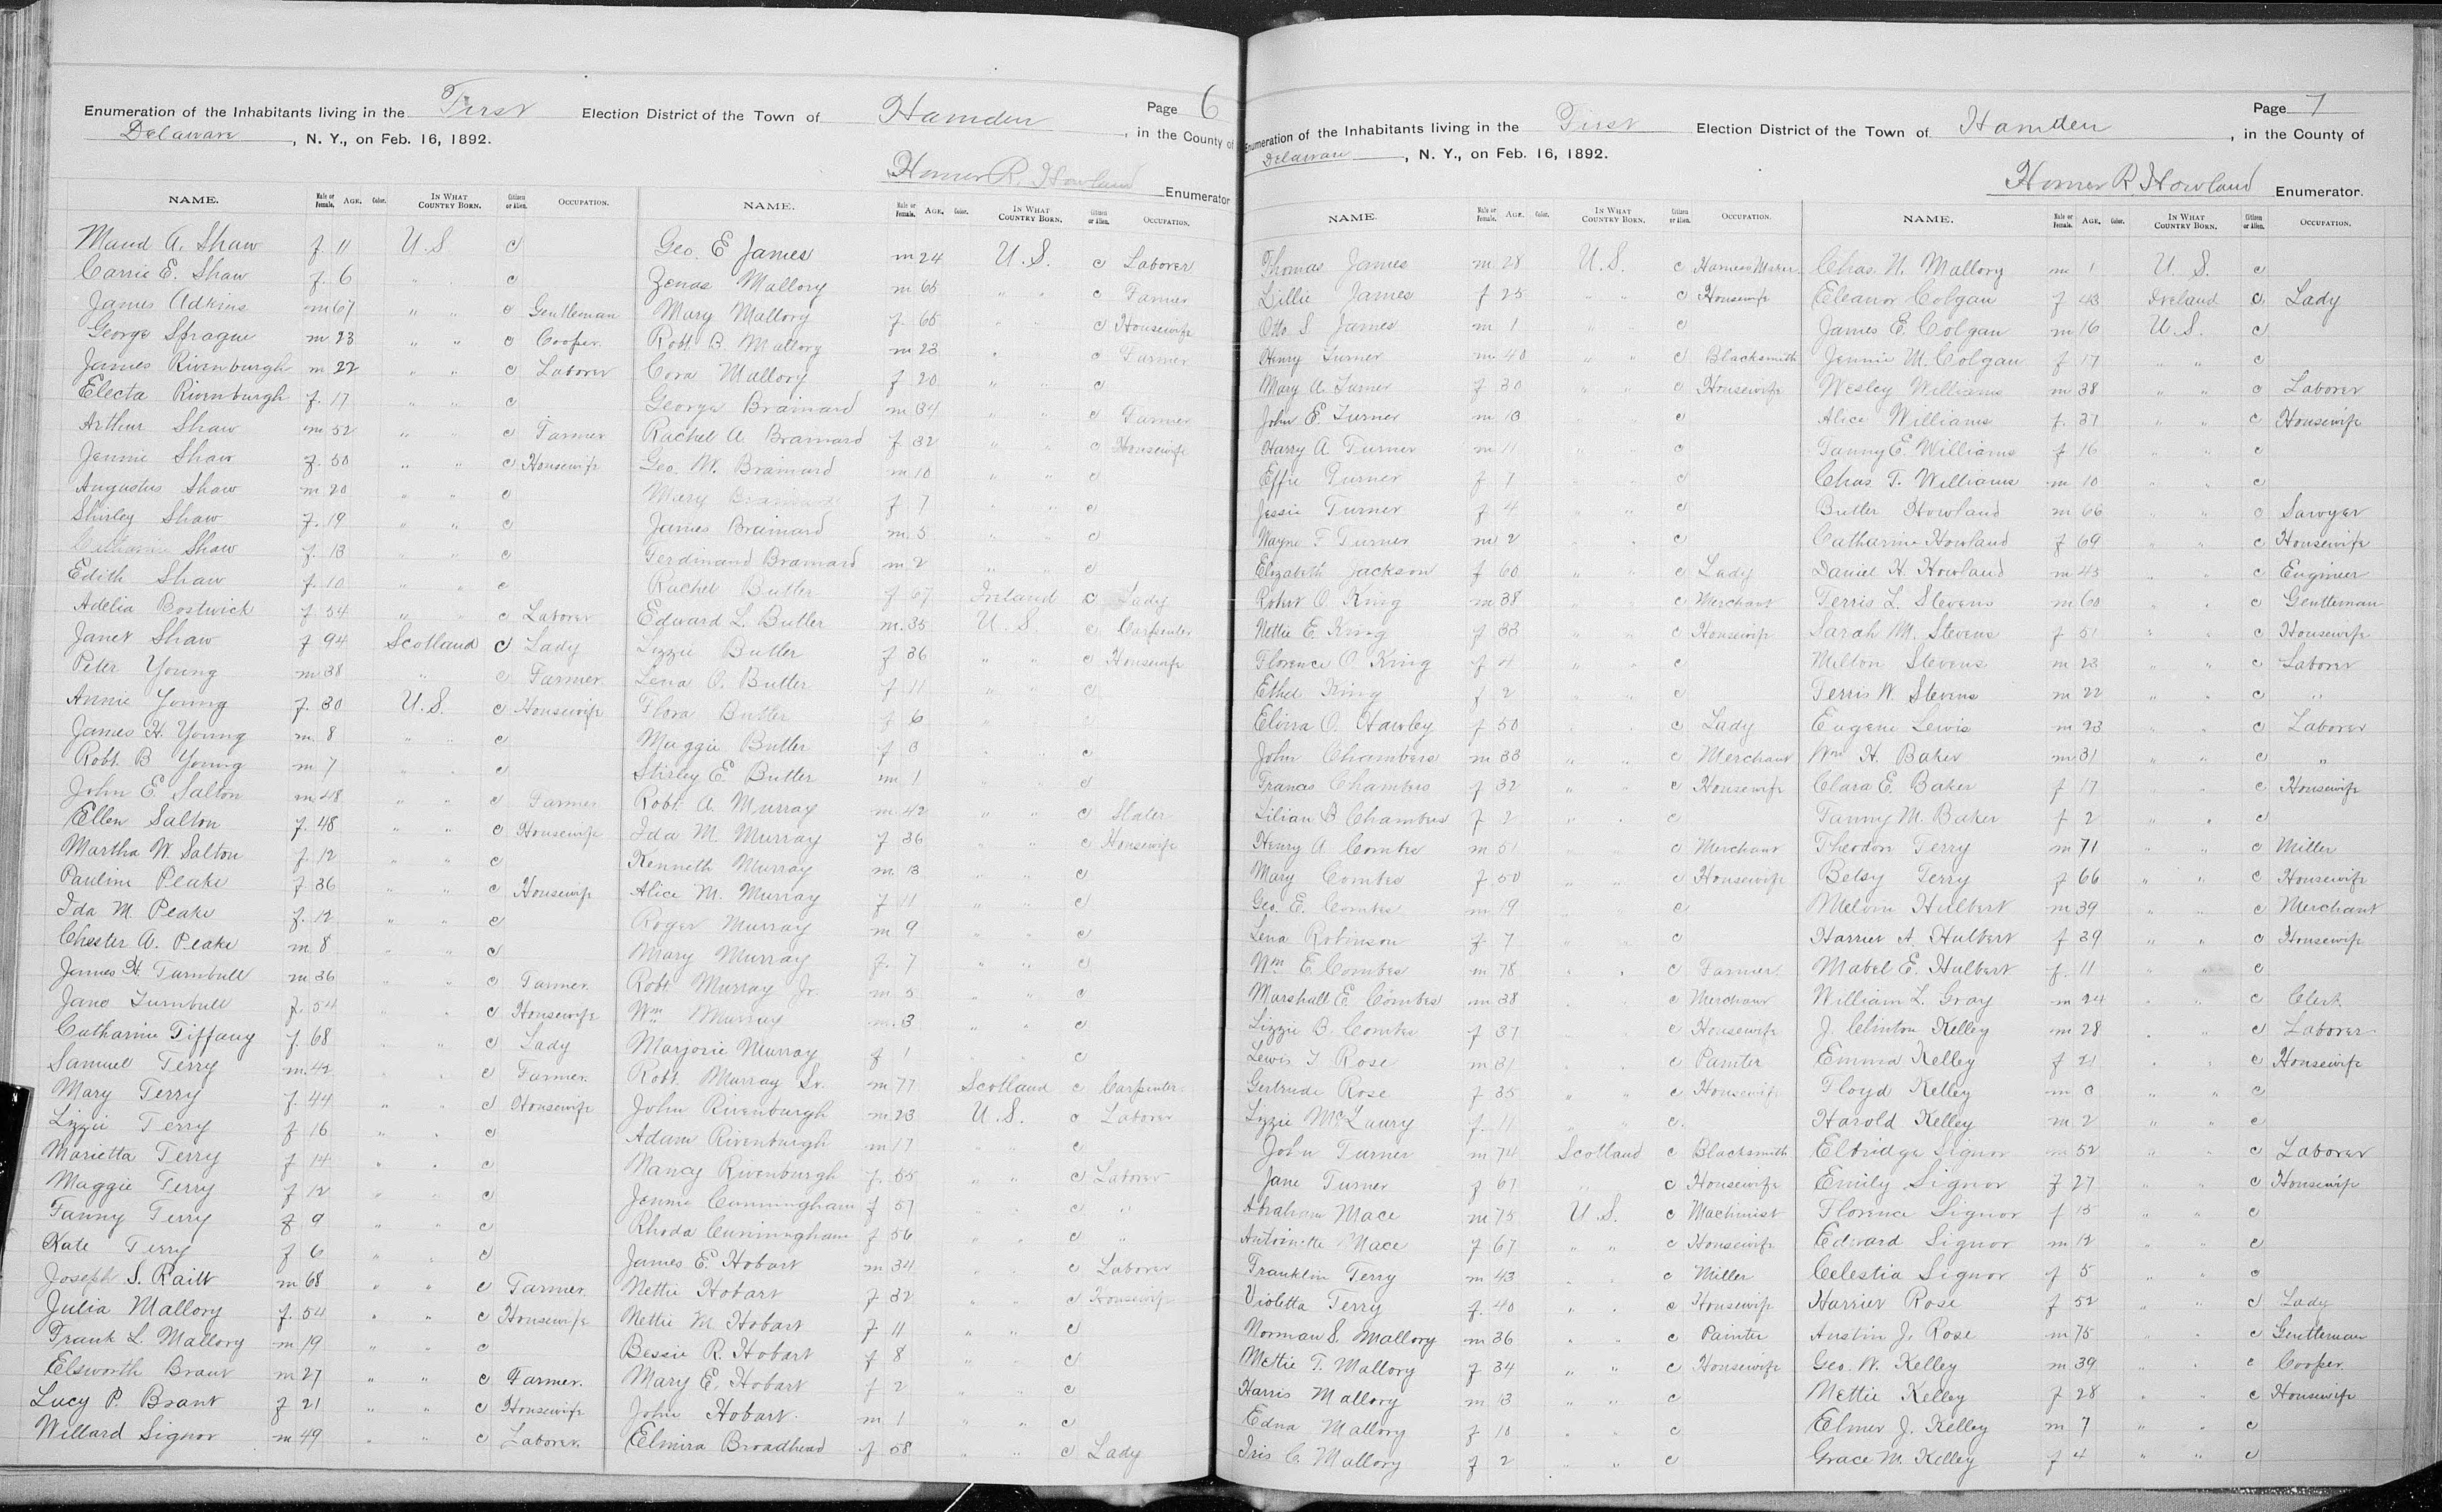 Page 6
Enumeration of the Inhabitants living in the First Election District of the Town of Hamden, in the County of
Delaware, N. Y., on Feb. 16, 1892.
Homer R. Howland Enumerator
NAME. Male or Female. AGE. Color. IN WHAT COUNTRY BORN. Citizen or Alien. OCCUPATION.
Maud A. Shaw f. 11 U.S. c
Carrie E. Shaw f. 6 " " c
James Adkins m 67 " " c Gentleman
George Sprague m 23 " " c Cooper.
James Rivenburgh m 22 " " c Laborer
Electa Rivenburgh f. 17 " " c
Arthur Shaw m 52 " " c Farmer
Jennie Shaw f. 50 " " c Housewife
Augustus Shaw m 20 " " c
Shirley Shaw f. 19 " " c
Shaw f. 13 " " c
Edith Shaw f. 10 " " c
Adelia Bostwick f 54 " " c Laborer
Janet Shaw f 94 Scotland c Lady
Peter Young m 38 " c Farmer
Annie Young f. 30 U.S. c Housewife
James H. Young m. 8 " " c
Robt. B Young m 7 " " c
John E. Salton m 48 " " c Farmer
Ellen Salton f. 48 " " c Housewife
Martha W. Salton f. 12 " " c
Pauline Peake f 36 " " c Housewife
Ida M Peake f. 12 " " c
Chester A. Peake m 8 " " c
James H. Turnbull m 36 " " c Farmer.
Jane Turnbull f. 54 " " c Housewife
Catharine Tiffany f. 68 " " c Lady
Samuel Terry m. 42 " " c Farmer.
Mary Terry f. 44 " " c Housewife
Lizzie Terry f 16 " " c
Marietta Terry f 14 " " c
Maggie Terry f 12 " " c
Fanny Terry f 9 " " c
Kate Terry f 6 " " c
Joseph S. Raitt m 68 " " c Farmer.
Julia Mallory f. 54 " " c Housewife
Frank L. Mallory m 19 " " c
Elsworth Brant m 27 " " c Farmer.
Lucy P. Brant f 21 " " c Housewife
Willard Signor m 49 " " c Laborer.
NAME. Male or Female. AGE. Color. IN WHAT COUNTRY BORN. Citizen or Alien. OCCUPATION.
Geo. E James m 24 U.S. c Laborer
Zenas Mallory m 65 " " c Farmer
Mary Mallory f 65 " " c Housewife
Robt. B. Mallory m 23 " c Farmer
Cora Mallory f 20 " " c
George Brainard m 34 " " c Farmer
Rachel A. Brainard f 32 " " c Housewife
Geo. W. Brainard m 10 " " c
Mary Brainard f 7 " " c
James Brainard m. 5 " " c
Ferdinand Brainard m 2 " " c
Rachel Butler f 67 Ireland c Lady
Edward L. Butler m. 35 U.S. c Carpenter
Lizzie Butler f 36 " " c Housewife
Lena O. Butler f 11 " " c
Flora Butler f 6 "
Maggie Butler f 3 " " c
Stirley E. Butler m 1 " " c
Robt. A. Murray m. 42 " " c Slater
Ida M. Murray f 36 " " c Housewife
Kenneth Murray m 13 " " c
Alice M. Murray f 11 " " c
Roger Murray m 9 " " c
Mary Murray f. 7 " " c
Robt. Murray Jr. m 5 " " c
Wm Murray m. 3 " " c
Marjorie Murray f 1 " " c
Robt. Murray Sr. m 77 Scotland c Carpenter
John Rivenburgh m 23 U.S. c Laborer
Adam Rivenburgh m 17 " " c
Nancy Rivenburgh f. 55 " " c Laborer
Jennie Cunningham f 57 " " c "
Rhoda Cunningham f 56 " " c "
James E. Hobart m 34 " " c Laborer
Nettie Hobart f 32 " " c Housewife
Nettie M. Hobart f 11 " " c
Bessie R. Hobart f 8 " " c
Mary E. Hobart f 2 " " c
John Hobart. m 1 " " c
Elmira Broadhead f 58 " " c Lady
Page 7
Enumeration of the Inhabitants living in the First Election District of the Town of Hamden, in the County of
Delaware, N. Y., on Feb. 16, 1892.
Homer R. Howland Enumerator.
NAME. Male or Female. AGE. Color. IN WHAT COUNTRY BORN. Citizen or Alien. OCCUPATION.
Thomas James m 28 U.S. c Harness Maker
Lillie James f 25 " " c Housewife
Otto S James m 1 " " c
Henry Turner m 40 " " c Blacksmith
Mary A. Turner f 30 " " c Housewife
John E. Turner m 13 " " c
Harry A Turner m 11 " " c
Effie Turner f 7 " " c
Jessie Turner f 4 " " c
Wayne F Turner m 2 " " c
Elizabeth Jackson f 60 " " c Lady
Robert O. King m 38 " c Merchant
Nettie E. King f 33 " " c Housewife
Florence O. King f 4 " " c
Ethel King f 2 " " c
Elvira O. Hawley f 50 " " c Lady
John Chambers m 33 " " c Merchant
Frances Chambers f 32 " " c Housewife
Lilian B Chambers f 2 " " c
Henry A Combs m 51 " " c Merchant
Mary Combs f 50 " " c Housewife
Geo. E. Combs m 19 " c
Lena Robinson f 7 " " c
Wm E. Combs m 78 " " c Farmer
Marshall E. Combs m 38 " c Merchant
Lizzie B. Combs f 37 " c Housewife
Lewis T Rose m 31 " " c Painter
Gertrude Rose f 35 " " c Housewife
Lizzie McLaury f. 11 " " c.
John Turner m 74 Scotland c Blacksmith
Jane Turner f 67 " c Housewife
Abraham Mace m 75 U.S. c Machinist
Antoinette Mace f 67 " " c Housewife
Franklin Terry m 43 " " c Miller
Violetta Terry f. 40 " " c Housewife
Norman S. Mallory m 36 " " c Painter
Mettie T. Mallory f 34 " " c Housewife
Harris Mallory m 13 " " c
Edna Mallory f 10 " " c
Iris C. Mallory f 2 " " c
NAME. Male or Female. AGE. Color. IN WHAT COUNTRY BORN. Citizen or Alien. OCCUPATION.
Chas. N. Mallory m 1 U.S. c
Eleanor Colgan f 43 Ireland c Lady
James E. Colgan m 16 U.S. c
Jennie M. Colgan f 17 " " c
Wesley Williams m 38 " " c Laborer
Alice Williams f. 37 " " c Housewife
Fanny E. Williams f 16 " " c
Chas T. Williams m 10 " " c
Butler Howland m 66 " " c Sawyer
Catharine Howland f 69 " " c Housewife
Daniel H. Howland m 43 " " c Engineer
Ferris L. Stevens m 60 " " c Gentleman
Sarah M. Stevens f 51 " " c Housewife
Milton Stevens m 23 " " c Laborer
Ferris W. Stevens m 22 " " c "
Eugene Lewis m 23 " " c Laborer
Wm H. Baker m 31 " " c "
Clara E. Baker f 17 " " c Housewife
Fanny M. Baker f 2 " " c
Theodore Terry m 71 " " c Miller
Betsy Terry f 66 " " c Housewife
Melvin Hulbert m 39 " " c Merchant
Harriet A. Hulbert f 39 " " c Housewife
Mabel E. Hulbert f. 11 " " c
William L. Gray m 24 " " c Clerk
J. Clinton Kelley m 28 " " c Laborer
Emma Kelley f 21 " " c Housewife
Floyd Kelley m 3 " " c
Harold Kelley m 2 " " c
Eldridge Signor m 52 " " c Laborer
Emily Signor f 27 " " c Housewife
Florence Signor f 15 " " c
Edward Signor m 12 " " c
Celestia Signor f 5 " " c
Harriet Rose f 52 " " c Lady
Austin J. Rose m 75 " " c Gentleman
Geo. W. Kelley m 39 " " c Cooper
Nettie Kelley f 28 " " c Housewife
Elmer J. Kelley m 7 " " c
Grace M. Kelley f 4 " " c